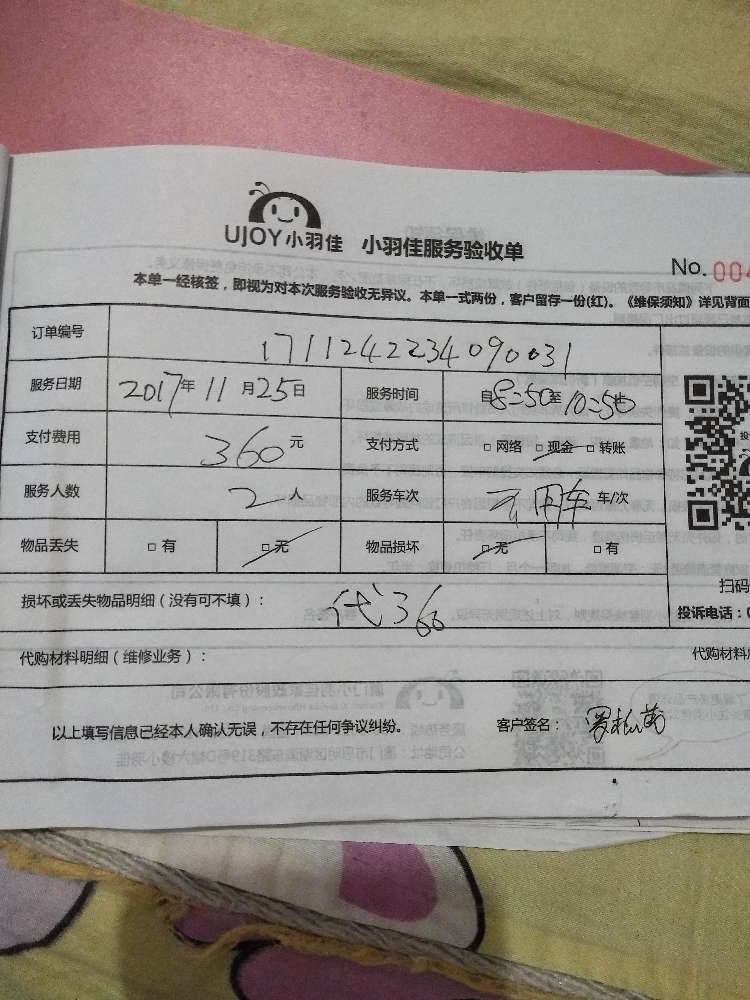 UJOY小羽佳 小羽佳服务验收单
No. 004
本单一经核签，即视为对本次服务验收无异议。本单一式两份，客户留存一份(红)。《维保须知》详见背面
订单编号 1711242234090031
服务日期 2017年11月25日 服务时间 自8:50至10:50
支付费用 360元 支付方式 □ 网络 □ 现金 □ 转账
服务人数 2人 服务车次 用车 车/次
物品丢失 □ 有 □ 无 物品损坏 □ 无 □ 有
扫码
损坏或丢失物品明细（没有可不填）： 代360
投诉电话：0
代购材料明细（维修业务）：
代购材料
以上填写信息已经本人确认无误，不存在任何争议纠纷。 客户签名：